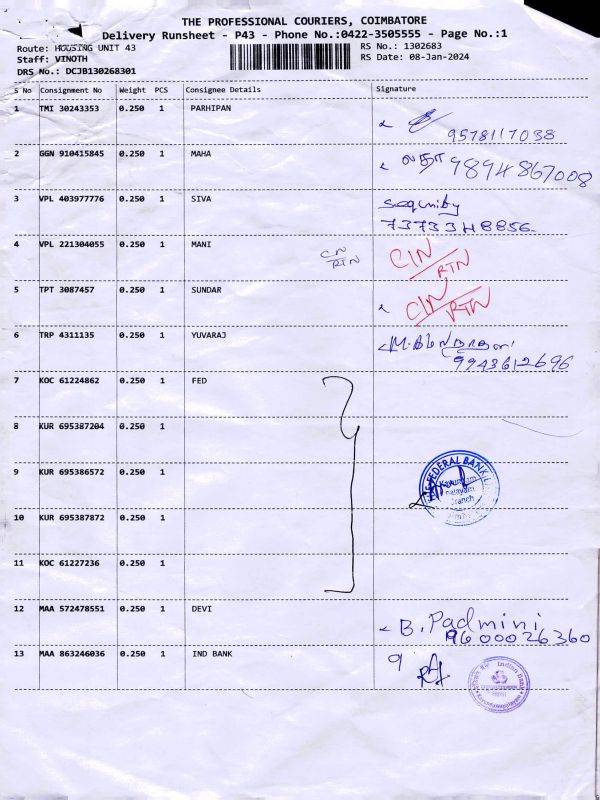 THE PROFESSIONAL COURIERS, COIMBATORE
Delivery Runsheet - P43 - Phone No.:0422-3505555 - Page No.:1
Route: HOUSING UNIT 43
RS No.: 1302683
Staff: VINOTH
RS Date: 08-Jan-2024
DRS No.: DCJB130268301
S No Consignment No Weight PCS Consignee Details Signature
1 TMI 30243353 0.250 1 PARHIPAN
9578117038
2 GGN 910415845 0.250 1 MAHA லதா 9894867008
3 VPL 403977776 0.250 1 SIVA
7373348856
4 VPL 221304055 0.250 1 MANI CN RTN CIN RTN
5 TPT 3087457 0.250 1 SUNDAR CIN RTN
6 TRP 4311135 0.250 1 YUVARAJ
9943612696
7 KOC 61224862 0.250 1 FED
8 KUR 695387204 0.250 1
FEDERAL BANK
9 KUR 695386572 0.250 1
Branch
10 KUR 695387872 0.250 1
11 KOC 61227236 0.250 1
12 MAA 572478551 0.250 1 DEVI B. Padmini
9600026360
13 MAA 863246036 0.250 1 IND BANK 9
Indian Bank